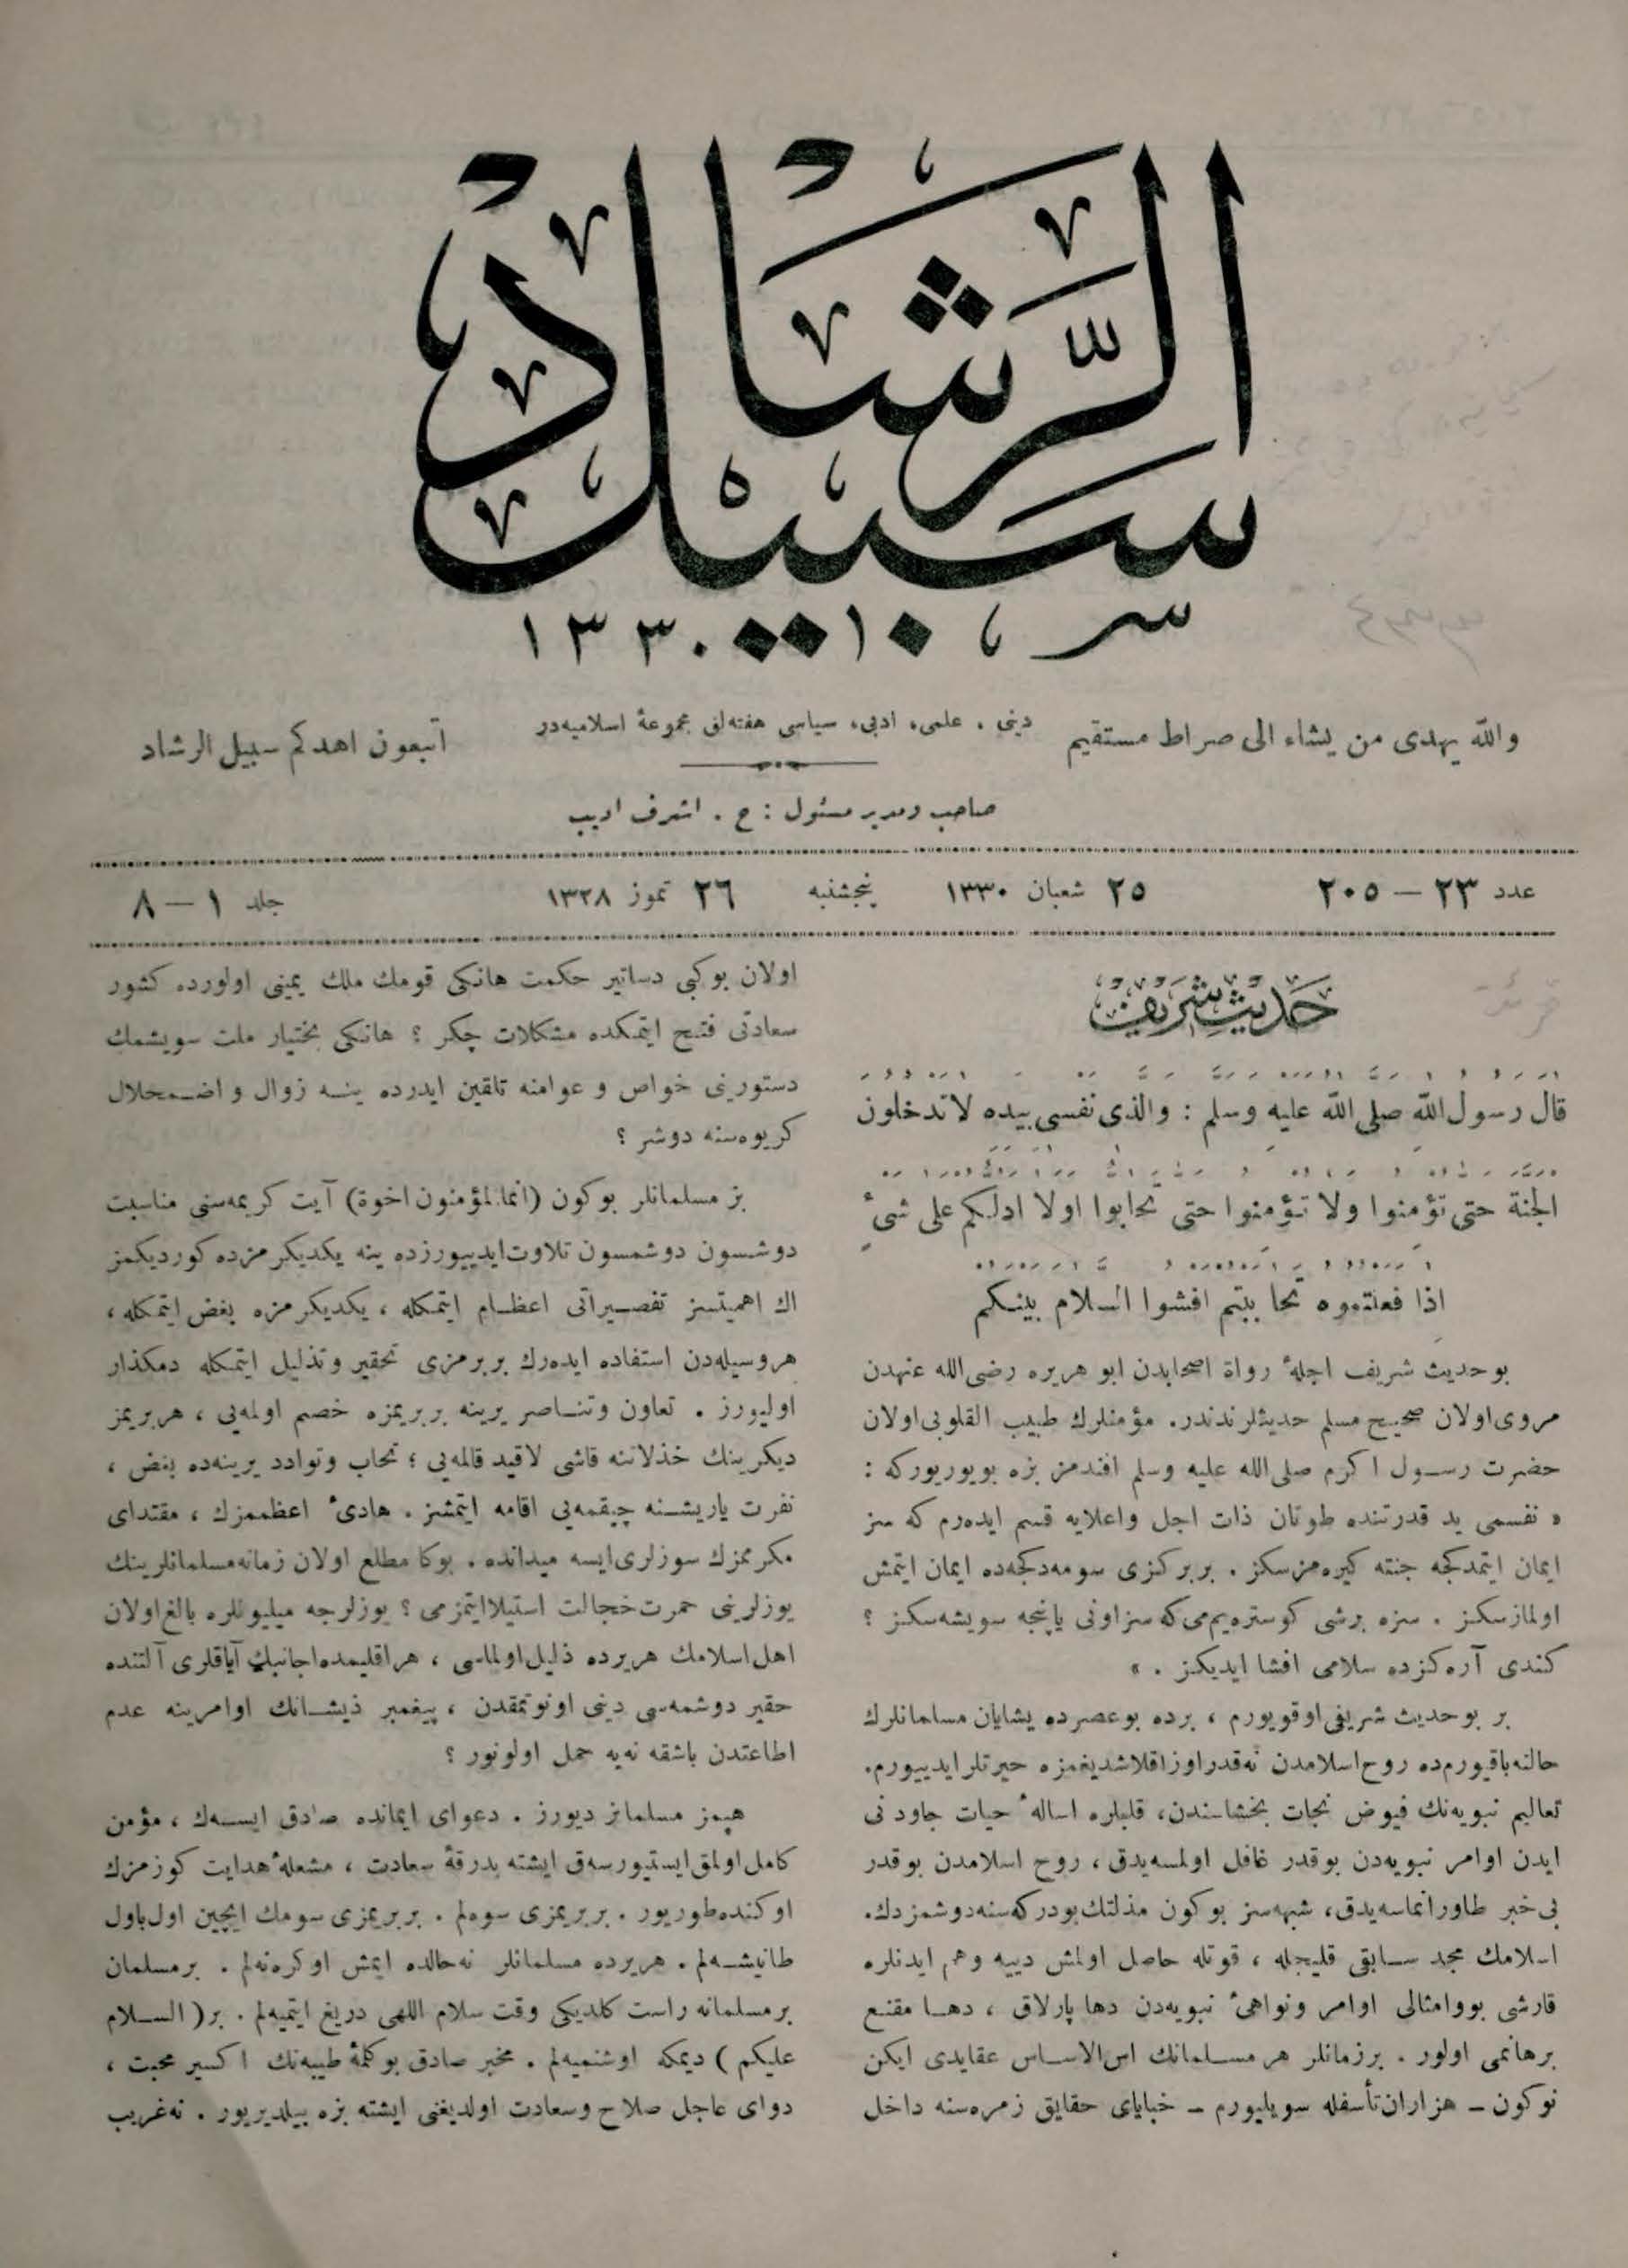 سبيل الرشاد
١٣٣٠
والله يهدى من يشاء الى صراط مستقيم
دينى ، علمى ، ادبى ، سياسى هفته‌لق مجموعهٔ اسلاميه‌در
اتبعون اهدكم سبيل الرشاد
صاحب ومدير مسئول : ح . اشرف اديب
عدد ٢٣ — ٢٠٥
٢٥ شعبان ١٣٣٠
پنجشنبه
٢٦ تموز ١٣٢٨
جلد ١ — ٨
حديث شريف
قال رسول الله صلى الله عليه وسلم : والذى نفسى بيده لا تدخلون
الجنة حتى تؤمنوا ولا تؤمنوا حتى تحابوا اولا ادلكم على شىء
اذا فعلتموه تحاببتم افشوا السلام بينكم
بو حديث شريف اجلهٔ رواة اصحابدن ابو هريره رضى الله عنهدن
مروى اولان صحيح مسلم حديثلرندندر. مؤمنلرك طبيب القلوبى اولان
حضرت رسول اكرم صلى الله عليه وسلم افندمز بزه بويوريوركه :
« نفسمى يد قدرتنده طوتان ذات اجل واعلايه قسم ايده‌رم كه سز
ايمان ايتمدكجه جنته كيره‌مزسكز . بربركزى سومه‌دكجه‌ده ايمان ايتمش
اولمازسكز . سزه برشى كوستره‌يم‌مى كه سز اونى ياپنجه سويشه‌سكز ؟
كندى آره‌كزده سلامى افشا ايديكز . »
بر بو حديث شريفى اوقويورم ، برده بو عصرده يشايان مسلمانلرك
حالنه باقيورم‌ده روح اسلامدن نه‌قدر اوزاقلاشديغمزه حيرتلر ايدييورم.
تعاليم نبويه‌نك فيوض نجات بخشاسندن، قلبلره اسالهٔ حيات جاودانى
ايدن اوامر نبويه‌دن بوقدر غافل اولمسه‌يدق ، روح اسلامدن بوقدر
بى خبر طاورانماسه‌يدق، شبهه‌سز بوكون مذلتك بودركه‌سنه دوشمزدك.
اسلامك مجد سابقى قليجله ، قوتله حاصل اولمش دييه وهم ايدنلره
قارشى بووامثالى اوامر ونواهىٔ نبويه‌دن دها پارلاق ، دها مقنع
برهانمى اولور . برزمانلر هر مسلمانك اس‌الاساس عقايدى ايكن
بوكون – هزاران تأسفله سويليورم – خباياى حقايق زمره‌سنه داخل
اولان بوكبى دساتير حكمت هانكى قومك ملك يمينى اولورده كشور
سعادتى فتح ايتمكده مشكلات چكر ؟ هانكى بختيار ملت سويشمك
دستورينى خواص و عوامنه تلقين ايدرده ينه زوال و اضمحلال
كريوه‌سنه دوشر ؟
بز مسلمانلر بوكون (انما المؤمنون اخوة) آيت كريمه‌سنى مناسبت
دوشسون دوشمسون تلاوت ايدييورزده ينه يكديكرمزده كورديكمز
اك اهميتسز تقصيراتى اعظام ايتمكله ، يكديكرمزه بغض ايتمكله ،
هروسيله‌دن استفاده ايده‌رك بربرمزى تحقير وتذليل ايتمكله دمكذار
اوليورز . تعاون وتناصر يرينه بربريمزه خصم اولمه‌يى ، هربريمز
ديكرينك خذلاننه قارشى لاقيد قالمه‌يى ؛ تحاب وتوادد يرينه‌ده بغض ،
نفرت ياريشنه چيقمه‌يى اقامه ايتمشز . هادىٔ اعظممزك ، مقتداى
مكرممزك سوزلرى ايسه ميدانده . بوكا مطلع اولان زمانه مسلمانلرينك
يوزلرينى حمرت خجالت استيلا ايتمزمى ؟ يوزلرجه ميليونلره بالغ اولان
اهل اسلامك هريرده ذليل اولماسى ، هر اقليمده اجانبك آياقلرى آلتنده
حقير دوشمه‌سى دينى اونوتمقدن ، پيغمبر ذيشانك اوامرينه عدم
اطاعتدن باشقه نه‌يه حمل اولونور ؟
هپمز مسلمانز ديورز . دعواى ايمانده صادق ايسه‌ك ، مؤمن
كامل اولمق ايستيورسه‌ق ايشته بدرقهٔ سعادت ، مشعلهٔ هدايت كوزمزك
اوكنده طوريور . بربريمزى سوه‌لم . بربريمزى سومك ايچين اول باول
طانيشه‌لم . هريرده مسلمانلر نه‌حالده ايمش اوكره‌نه‌لم . برمسلمان
برمسلمانه راست كلديكى وقت سلام اللهى دريغ ايتميه‌لم . بر ( السلام
عليكم ) ديمكه اوشنميه‌لم . مخبر صادق بوكلمهٔ طيبه‌نك اكسير محبت ،
دواى عاجل صلاح وسعادت اولديغنى ايشته بزه بيلديريور . نه‌غريب